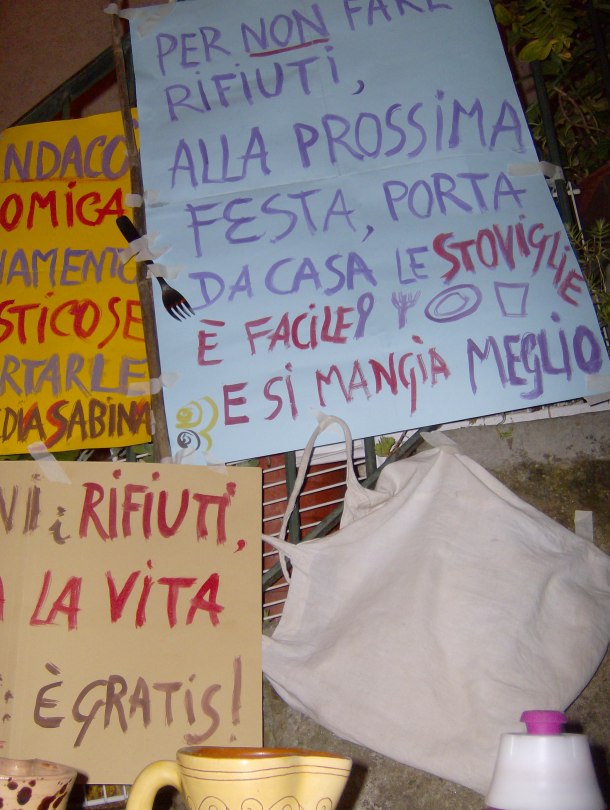 PER NON FARE
RIFIUTI,
ALLA PROSSIMA
FESTA, PORTA
DA CASA LE STOVIGLIE
È FACILE
E SI MANGIA MEGLIO
NDACO
OMICA
NAMENTO
STICOSE
RTARLE
EDIA SABINA
NI i RIFIUTI,
A LA VITA
È GRATIS!